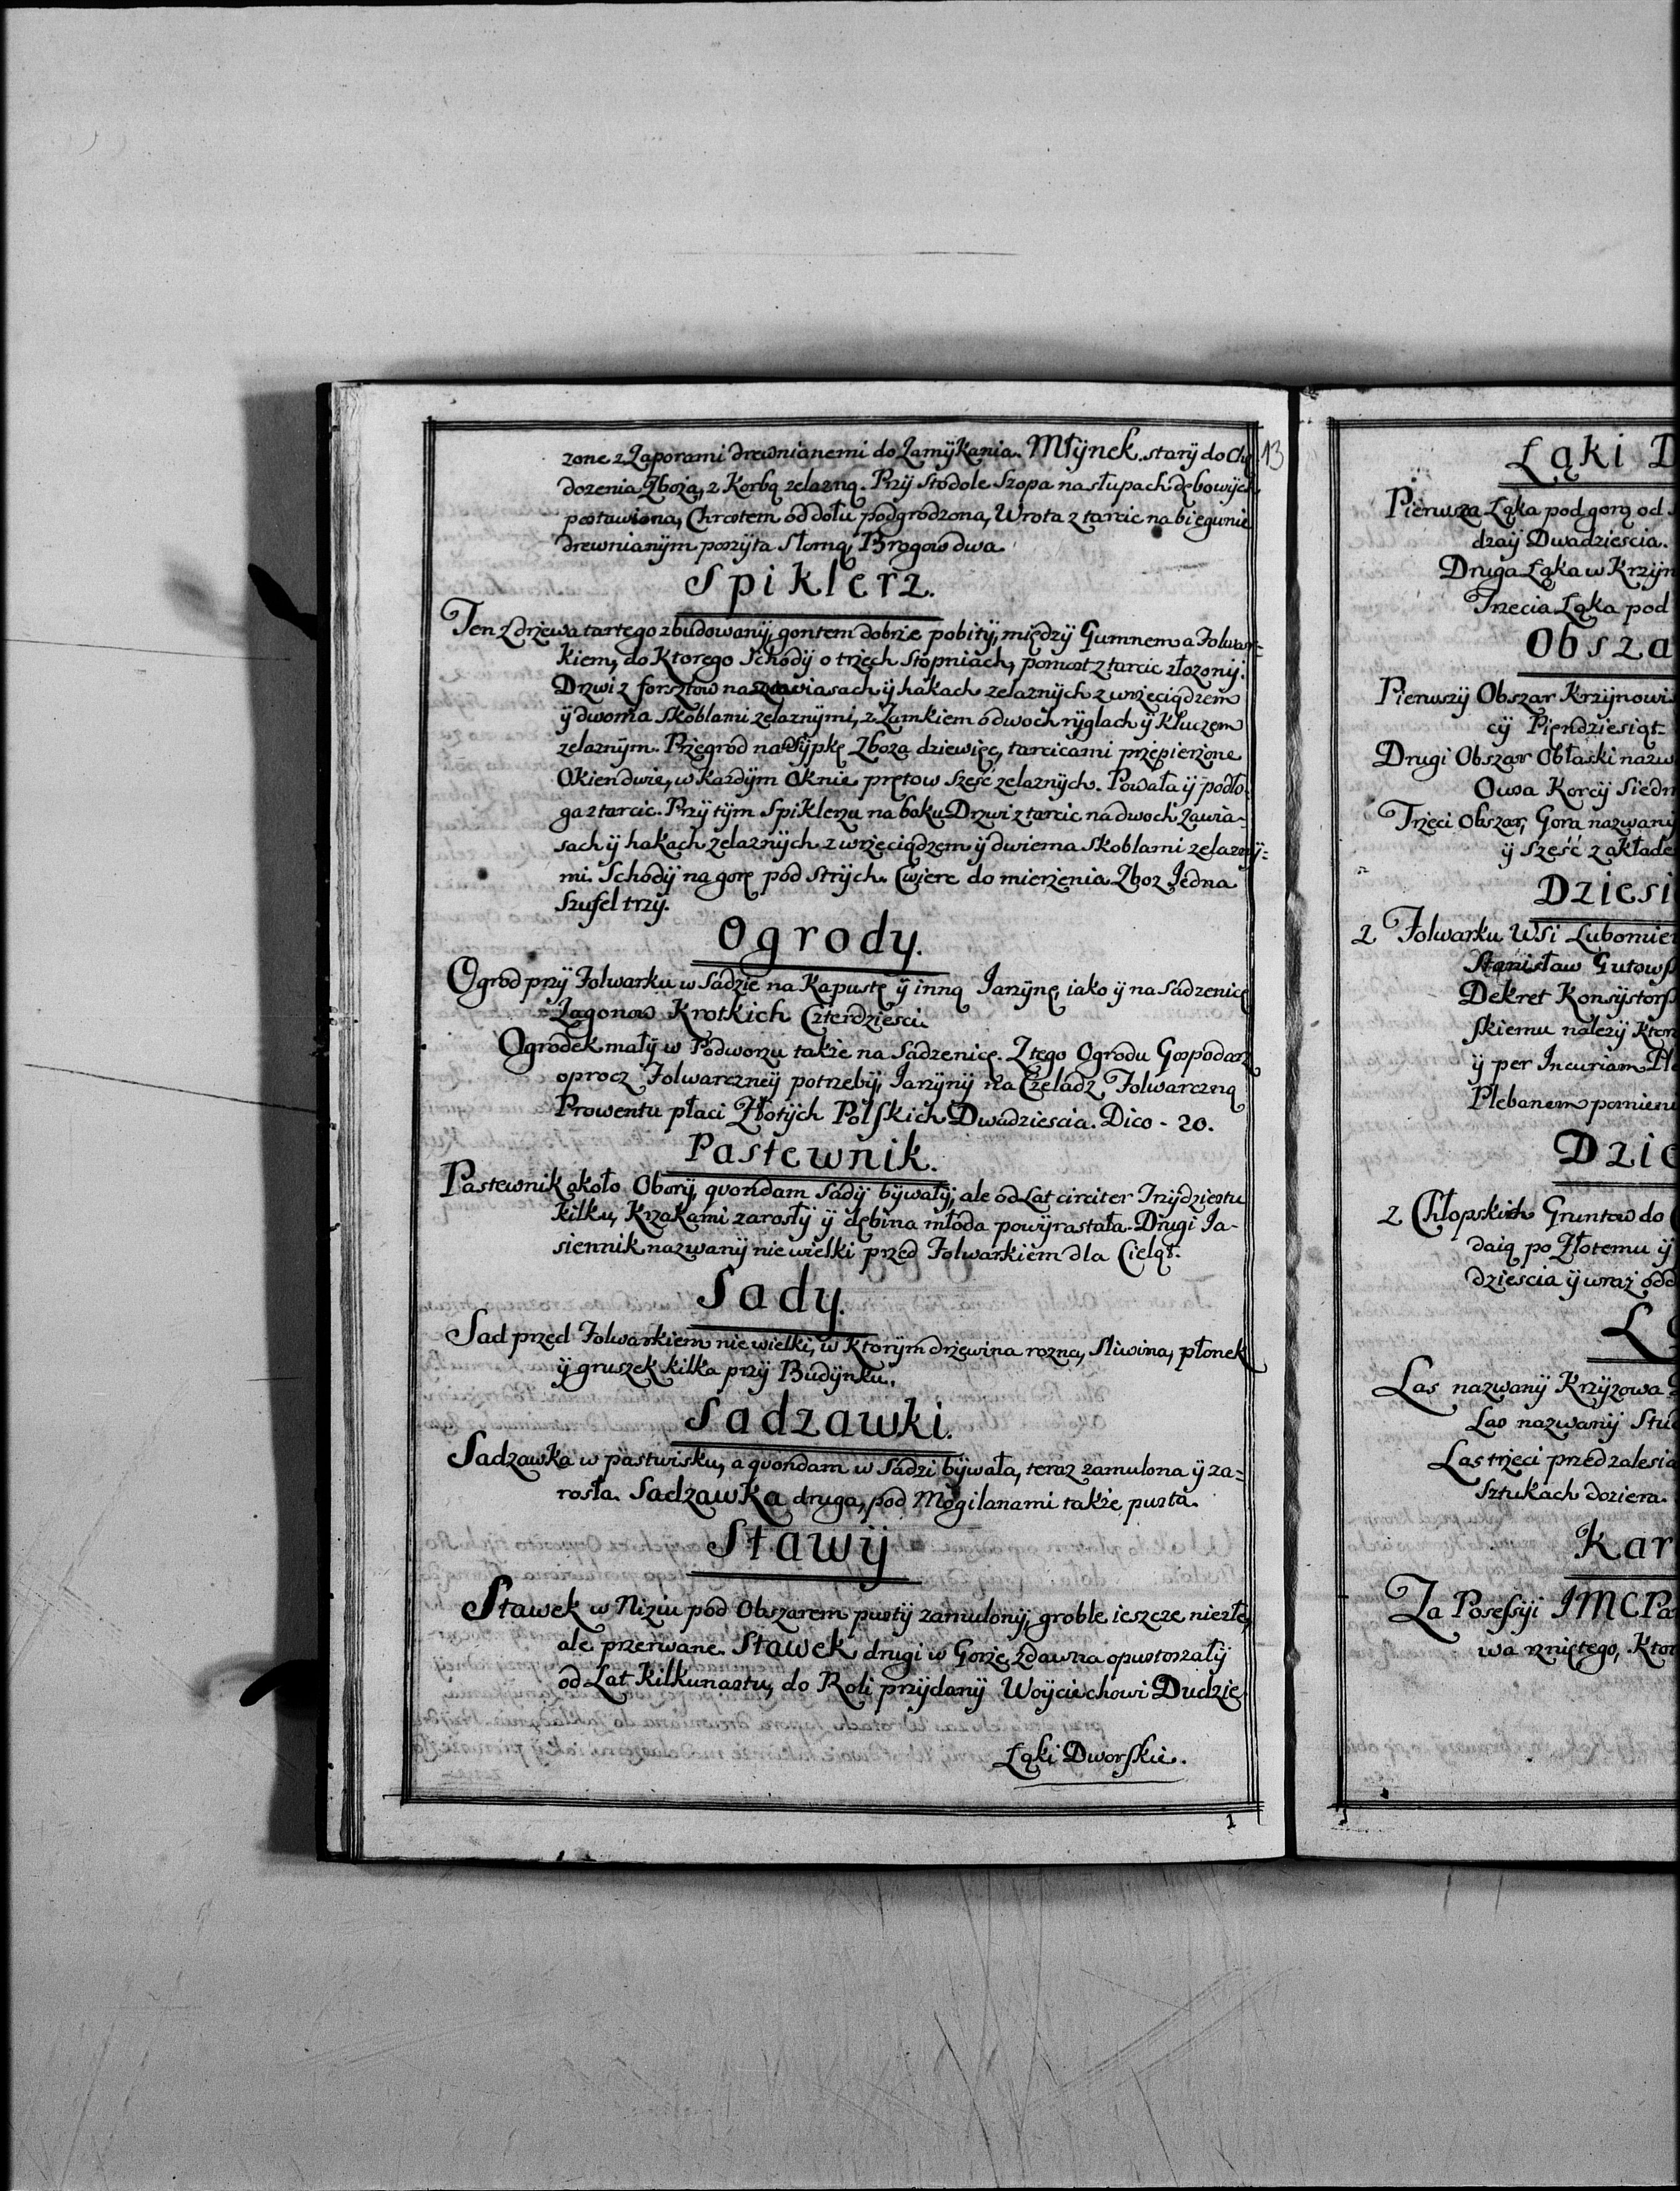 zone z Zaporami drewnianemi do Zamÿkania. Młÿnek starÿ do Chę
13
dozenia Zboża, z Korbą zelazną. Przÿ Stodole Szopa na słupach dębowÿch
postawiona, Chrostem od dołu podgrodzona, Wrota z tarcic na biegunie
drewnianÿm poszÿta Słomą, Brogow dwa.
Spiklerz.
Ten z drzewa tartego zbudowanÿ, gontem dobrze pobitÿ, międzÿ Gumnem a Folwar=
kiem, do Ktorego Schodÿ o trzech Stopniach, pomost z tarcic złozonÿ.
Drzwi z forsztow na zawiasach ÿ hakach zelaznÿch z wrzeciądzem
ÿ dwoma Skoblami zelaznÿmi, z Zamkiem o dwoch rÿglach ÿ Kluczem
zelaznÿm. Przegrod na Sÿpkę Zboża dziewięc, tarcicami przepierzone
Okien dwie, w Kazdÿm Oknie prętow Szesc zelaznÿch. Powała ÿ podło=
ga z tarcic. Przÿ tÿm Spiklerzu na boku Drzwi z tarcic na dwoch zawia=
sach ÿ hakach zelaznÿch z wrzeciądzem ÿ dwiema Skoblami zelaznÿ=
mi. Schodÿ na gorę pod Strÿch. Cwierc do mierzenia Zboz Jedna
Szufel trzÿ.
Ogrody.
Ogrod przÿ Folwarku w Sadzie na Kapustę ÿ inną Jarzÿnę, iako ÿ na Sadzenicę
Zagonow Krotkich Czterdziesci.
Ogrodek małÿ w Podworzu takze na Sadzenicę. Z tego Ogrodu Gospodarz
oprocz Folwarcznéÿ potrzebÿ, Jarzÿnÿ na Czeladz Folwarczną
Prowentu płaci Złotÿch Polskich Dwadziescia. Dico - 20.
Pastewnik.
Pastewnik około Oborÿ, quondam Sadÿ bÿwałÿ, ale od Lat circiter Trzÿdziestu
kilku, Krzakami zarosłÿ ÿ dębina młoda powÿrastała. Drugi Ja-
siennik nazwanÿ nie wielki przed Folwarkiem dla Cieląt.
Sady.
Sad przed Folwarkiem nie wielki, w Ktorÿm drzewina rozna, Sliwina, płonek
ÿ gruszek kilka przÿ Budÿnku.
Sadzawki.
Sadzawka w pastwisku, a quondam w Sadzi bÿwała, teraz zamulona ÿ za=
rosła. Sadzawka druga, pod Mogilanami takze pusta.
Stawÿ
Stawek w Niziu pod Obszarem pustÿ zamulonÿ, groble ieszcze niezłe,
ale przerwane. Stawek drugi w Gorze zdawna opustoszałÿ
od Lat Kilkunastu, do Roli przÿdanÿ Woÿciechowi Dudzie.
Łąki Dworskie.
1
Łąki D
Pierwsza Łąka pod gorą od
dzaÿ Dwadziescia.
Druga Łąka w Krzÿn
Trzecia Łąka pod
Obsza
Pierwszÿ Obszar Krzÿnowis
cÿ Piendziesiąt
Drugi Obszar Obłaski nazw
Owsa Korcÿ Siedm
Trzeci Obszar, Gora nazwanÿ
ÿ Szesc zakłade
Dziesi
Z Folwarku Wsi Lubomier
Stanisław Gutows
Dekret Konsÿstors
skiemu nalezÿ Ktor
ÿ per Incuriam Ple
Plebanem pomieni
Dzie
Z Chłopskich Gruntow do
daią po Złotemu ÿ
dziescia ÿ wraz odd
L
Las nazwanÿ Krzÿzowa
Las nazwanÿ Stud
Las trzeci przed zalesia
Sztukach doziera.
Kar
Za Posessÿi JMC Pa
wa rznistego, Ktor